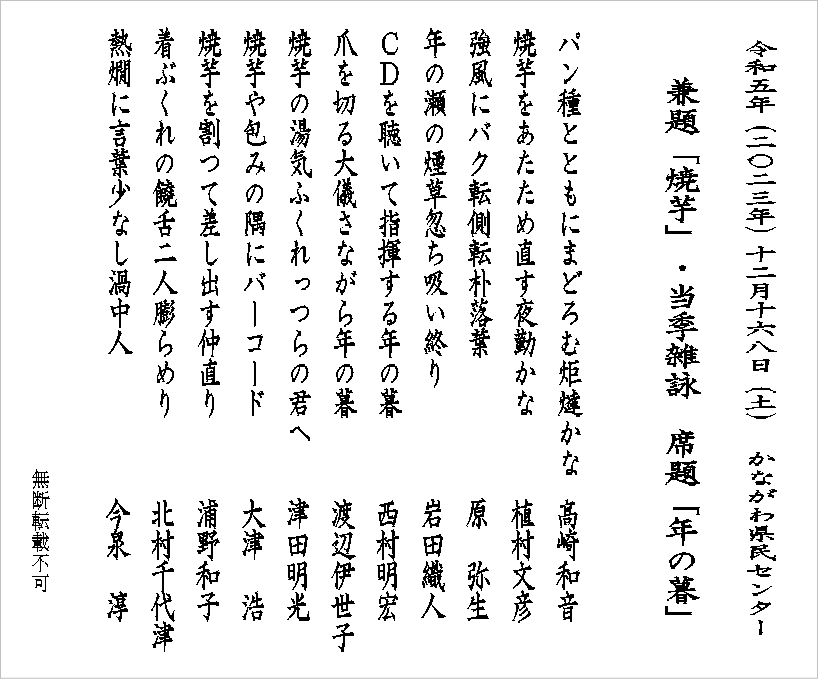 令和五年（二〇二三年）十二月十六八日（土）　かながわ県民センター
兼題「焼芋」・当季雑詠　席題「年の暮」
パン種とともにまどろむ炬燵かな　高崎和音
焼芋をあたため直す夜勤かな　植村文彦
強風にバク転側転朴落葉　原　弥生
年の瀬の煙草忽ち吸い終り　岩田織人
ＣＤを聴いて指揮する年の暮　西村明宏
爪を切る大儀さながら年の暮　渡辺伊世子
焼芋の湯気ふくれっつらの君へ　津田明光
焼芋や包みの隅にバーコード　大津　浩
焼芋を割つて差し出す仲直り　浦野和子
着ぶくれの饒舌二人膨らめり　北村千代津
熱燗に言葉少なし渦中人　今泉　淳
無断転載不可